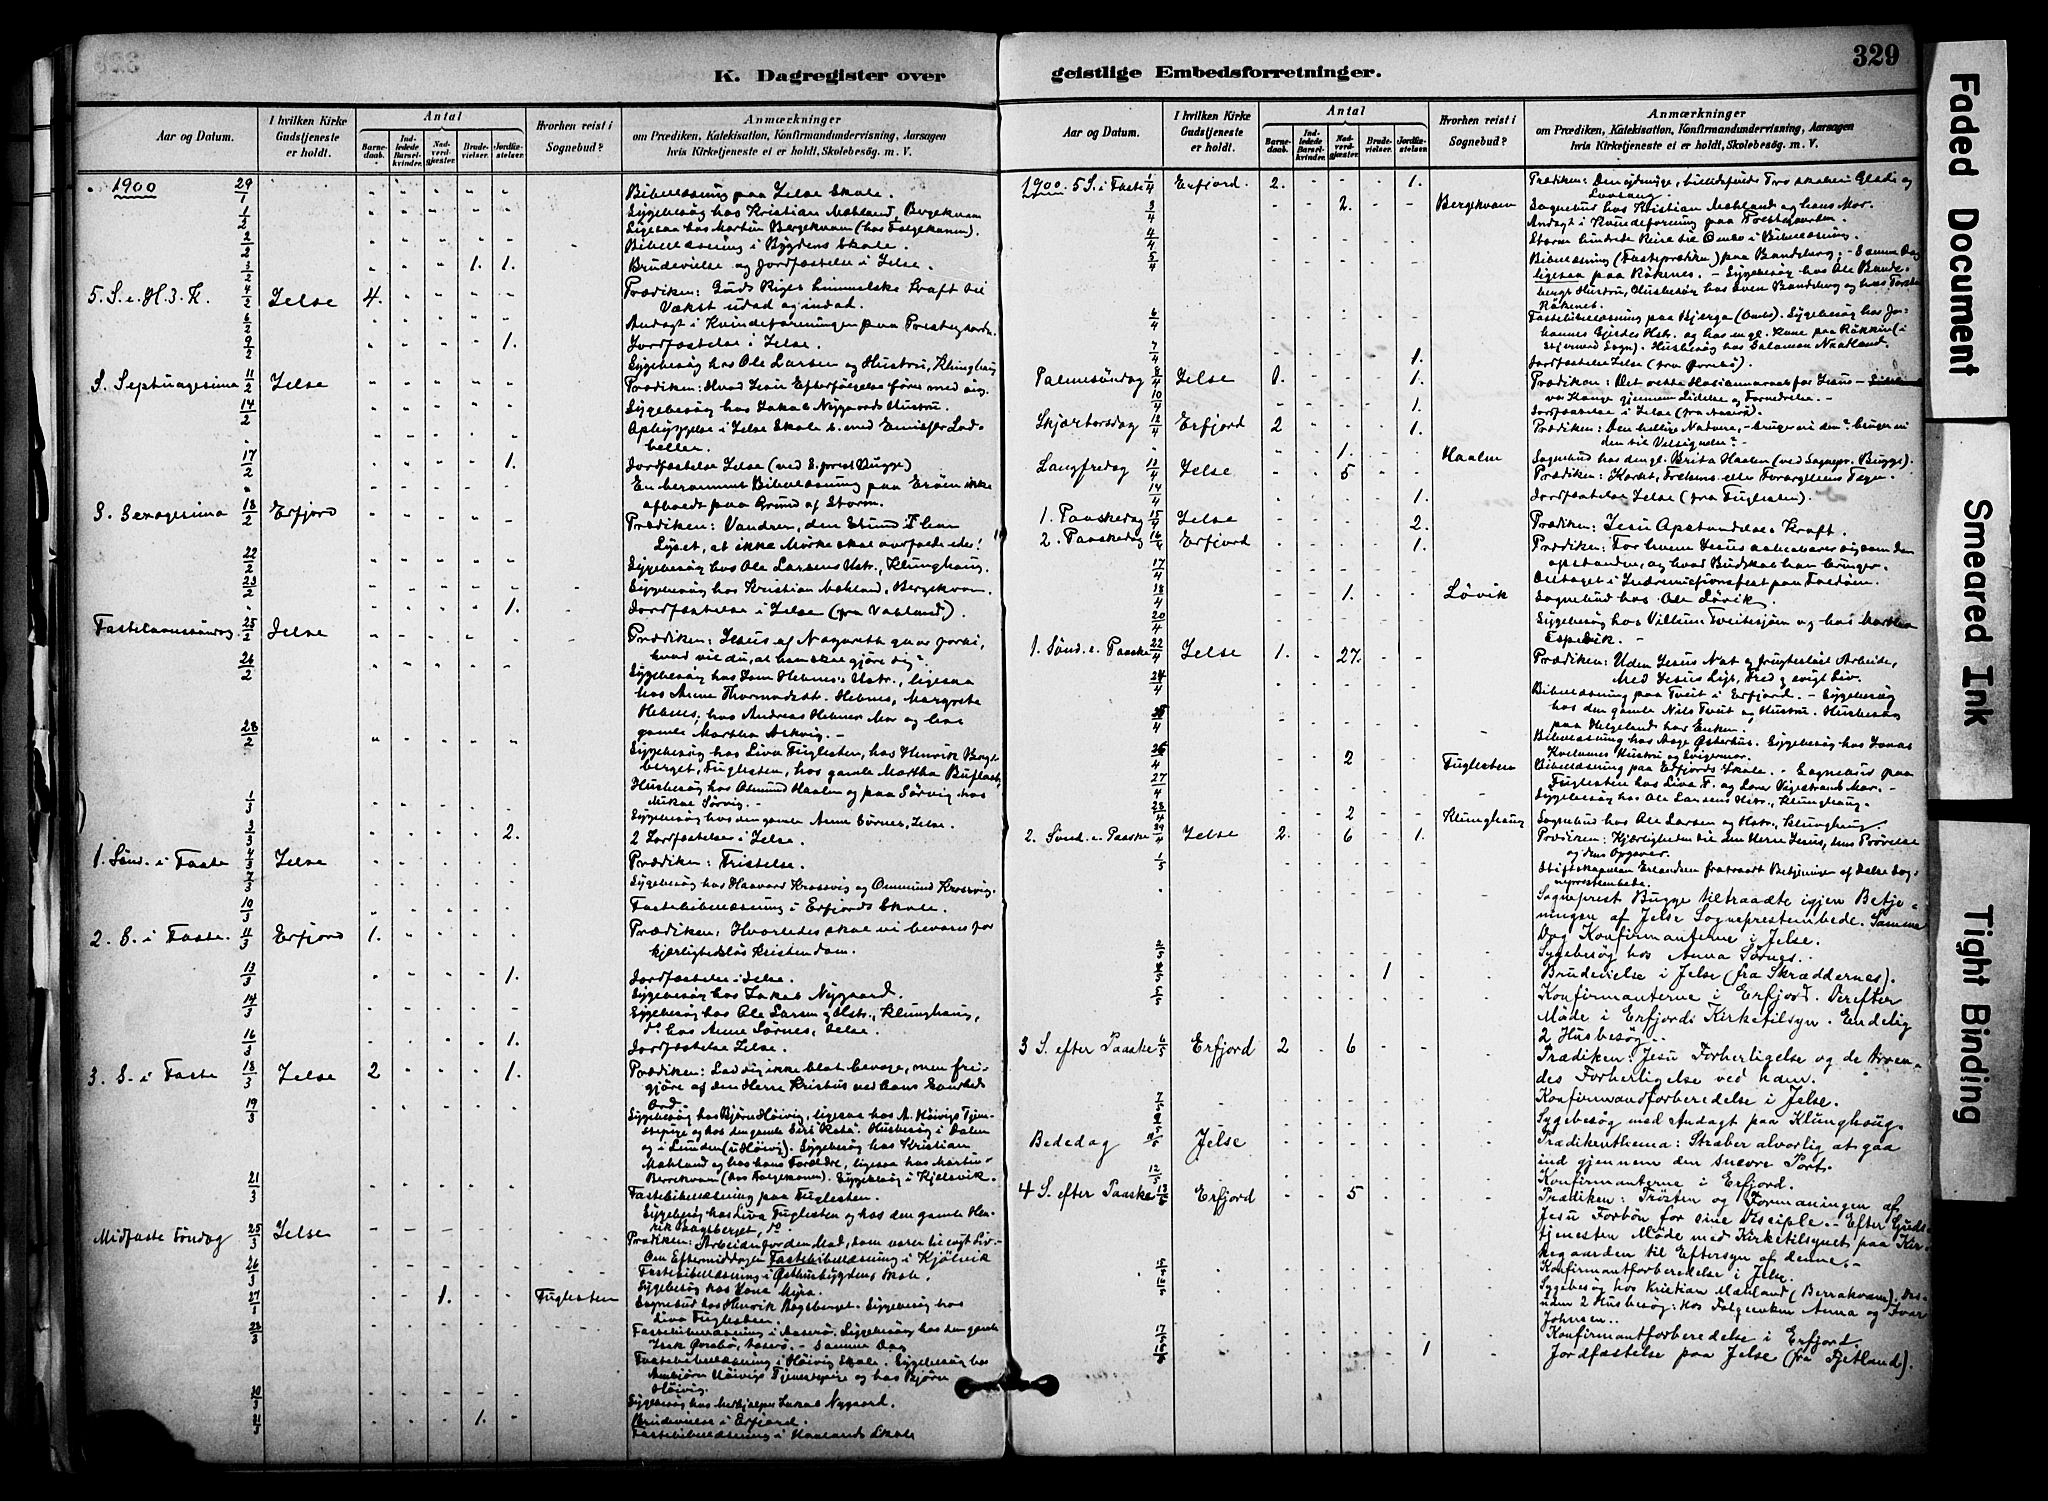 329
K. Dagregister over geistlige Embedsforretninger.
Aar og Datum.
I hvilken Kirke Gudstjeneste er holdt.
Antal
Barnedaab.
Indledede Barselkvinder.
Nadverdgjæster.
Brudevielser.
Jordfæstelser.
Hvorhen reist i Sognebud?
Anmærkninger
om Prædiken, Katekisation, Konfirmandundervisning, Aarsagen
hvis Kirketjeneste ei er holdt, Skolebesøg. m. V.
1900 29/1 Bibellæsning paa Jelse Skole.
1/2 Sygebesøg hos Kristian Mæhland, Bergekvam
Ligesaa hos Martin Bergekvam (hos Folgekonen).
2/2 Bibellæsning i Bygdens Skole.
3/2 1. 1. Brudevielse og Jordfæstelse i Jelse.
5. S. e. H. 3. K. 4/2 Jelse 4. Prædiken: Guds Riges himmelske Kraft til
Vækst udad og indad.
6/2 Andagt i Kvindeforeningen paa Prestegaarden
9/2 1. Jordfæstelse i Jelse.
Sygebesøg hos Ole Larsen og Hustru, Klunghaug
S. Septuagesima 11/2 Jelse Prædiken: Hvad Jesu Efterfølgelse fører med sig.
14/2 Sygebesøg hos Jakob Nygaards Hustru.
Ophyggelse i Jelse Skole s. med Emissær Lodbollen.
17/2 1. Jordfæstelse Jelse (ved S.prest Bugge)
En berammet Bibellæsning paa Erøen ikke
afholdt paa Grund af Storm.
S. Sexagesima 18/2 Erfjord Prædiken: Vandrer, den Stund I har
Lyset, at ikke Mørke skal overfalde eder!
22/2 Sygebesøg hos Ole Larsens Hstr., Klunghaug.
23/2 Sygebesøg hos Kristian Mæhland, Bergekvam.
1. Jordfæstelse i Jelse (fra Vatland).
Fastelavnssøndag 25/2 Jelse Prædiken: Jesus af Nazareth gaar forbi,
hvad vil du, at han skal gjøre dig?
26/2 Sygebesøg hos Tom Hebnes's Hstr., ligesaa
hos Anne Thormodsdtr. Hebnes, Margreta
Hebnes, hos Andreas Hebnes Mor og hos
gamle Martha Askvig. -
28/2 Sygebesøg hos Liva Fuglesten, hos Henrik Bergsberget, Fuglesten, hos gamle Martha
Husbesøg hos Osmund Haalen og paa Sørvig hos
Mikal Sørvig. -
1/3 Sygebesøg hos den gamle Anne Sørnes, Jelse.
3/3 2. 2 Jordfæstelser i Jelse.
1. Sønd. i Faste 4/3 Jelse Prædiken: Fristelse.
7/3 Sygebesøg hos Haavard Krossvig og Ommund Krossvig.
10/3 Fastebibellæsning i Erfjords Skole.
2. S. i Faste. 11/3 Erfjord 1. Prædiken: Hvorledes skal vi bevares for
kjærlighedsløs Kristendom.
13/3 1. Jordfæstelse i Jelse.
Sygebesøg hos Jakob Nygaard.
14/3 Sygebesøg hos Ole Larsen og Hstr., Klunghaug,
do hos Anne Sørnes, Jelse.
16/3 1. Jordfæstelse Jelse.
3. S. i Faste 18/3 Jelse 2 1. Prædiken: Lad dig ikke blot bevæge, men frigjøre af den Herre Kristus ved hans Sandheds
Ord.
19/3 Sygebesøg hos Bjørn Høivig, ligesaa hos A. Høivigs Tjenstepige og hos den gamle Siri "Kota". Husbesøg i Dalen
og i Lunden (u/ Høivig). Sygebesøg hos Kristian
Mæhland og hos hans Forældre, ligesaa hos Martin
Berrekvam (hos Folgekonen). Sygebesøg i Kjelsvik.
21/3 Fastebibellæsning paa Fuglesten.
Sygebesøg hos Liva Fuglesten og hos den gamle Henrik Bogsberget, do
Midfaste Søndag 25/3 Jelse Prædiken: Arbeider for den Mad, som varer til evigt Liv.
Om Eftermiddagen Fastebibellæsning i Kjølvik
26/3 Fastebibellæsning i Østhusbygdens Skole.
Sygebesøg hos Jona Myra.
27/3 1. Fuglesten Sognebud hos Henrik Bogsberget. Sygebesøg hos
Liva Fuglesten.
28/3 Fastebibellæsning i Aaserø. Sygebesøg hos den gamle
Isak Øvrebø, Aaserø. - Samme Dag
Fastebibellæsning i Høivig Skole. Sygebesøg hos
Høivigs Tjenestepige og hos Bjørn
Høivig.
30/3 Sygebesøg hos Medhjelper Jakob Nygaard.
31/3 1. Brudevielse i Erfjord.
Fastebibellæsning i Haalands Skole
Aar og Datum.
I hvilken Kirke Gudstjeneste er holdt.
Antal
Barnedaab.
Indledede Barselkvinder.
Nadverdgjæster.
Brudevielser.
Jordfæstelser.
Hvorhen reist i Sognebud?
Anmærkninger
om Prædiken, Katekisation, Konfirmandundervisning, Aarsagen
hvis Kirketjeneste ei er holdt, Skolebesøg m. V.
1900. 5 S. i Faste 1/4 Erfjord. 2. 1. Prædiken: Den ydmyge, Tro skaber Glæde og
Lovsang.
3/4 2. Bergekvam Sognebud hos Kristian Mæhland og hans Mor.
Andagt i Kvindeforening paa Prestegaarden.
4/4 Storm hindrete Reise til Ombo i Bibellæsning.
5/4 Bibellæsning (Fasteprædiken) paa Bandeberg. - Samme Dag
ligesaa paa Røkenes. - Sygebesøg hos Ole Bandebergs Hustru, Husbesøg hos Sven Bandeberg og hos
Røkenes.
6/4 Fastebibellæsning paa Bjerga (Ombo). Sygebesøg hos Johannes Hstr. og hos en gl. Kone paa (i
Sogn). Husbesøg hos Salamon Nautland.
7/4 1. Jordfæstelse Jelse (fra Jørnes).
Palmesøndag 8/4 Jelse 1. 1. Prædiken: Det rette Hosiannaraab for Jesus -
vor Konge gjennem Lidelse og Fornedrelse. -
10/4 1. Jordfæstelse i Jelse (fra Aaserø).
Skjærtorsdag 12/4 Erfjord 2 1. Prædiken: Den hellige Nadvere, - bruger vi den? bruger vi
den til Velsignelse? -
1. Haalen Sognebud hos den gl. Brita Haalen (ved Sognepr. Bugge).
Langfredag 13/4 Jelse 5 Prædiken: Korset, Frelsens eller Forargelsens Tegn.
14/4 1. Jordfæstelse Jelse (fra Fuglesten).
1. Paaskedag 15/4 Jelse 2. Prædiken: Jesu Opstandelses Kraft.
2. Paaskedag 16/4 Erfjord 1. Prædiken: For hvem Jesus aabenbarer sig som den
opstandne, og hvad Budskab han bringer.
17/4 Deltaget i Indremissionsfest paa Foldøen.
18/4 1. Løvik Sognebud hos Ole Løvik.
20/4 Sygebesøg hos Villum Tveitesjøen og hos Martha
Espevik. -
1. Sønd. e. Paaske 22/4 Jelse 1. 27. Prædiken: Uden Jesus Nat og frugtesløst Arbeide,
Med Jesus Lys, Fred og evigt Liv.
24/4 Bibellæsning paa Tveit i Erfjord. - Sygebesøg
hos den gamle Nils Tveit og Hustru. Husbesøg
paa Helgeland hos Enken.
25/4 Bibellæsning hos Aage Østerhus. Sygebesøg hos Jonas
Kvelvanes Hustru og Svigermor.
26/4 2 Fuglesten Bibellæsning paa Erfjords Skole. - Sognebud paa
Fuglesten hos Liva F. og Lars Vigestrands Mor. -
27/4 Sygebesøg hos Ole Larsens Hstr., Klunghaug. -
28/4 2 Klunghaug Sognebud hos Ole Larsen og Hstr., Klunghaug
2. Sønd. e. Paaske 29/4 Jelse 2. 6 1. Prædiken: Kjærligheden til den Herre Jesus, dens Prøvelse
og dens Opgaver.
1/5 Stiftskapelan Erlandsen fratraadt Betjeningen af Jelse Sognepræstembede.
Sogneprest Bugge tiltraadte igjen Betjeningen af Jelse Sogneprestembede. Samme
Dag Konfirmanterne i Jelse.
2/5 Sygebesøg hos Anna Sørnes.
4/5 1 Brudevielse i Jelse (fra Skræddernes).
5/5 Konfirmanterne i Erfjord. Derefter
Møde i Erfjords Kirketilsyn. Endelig
2 Husbesøg.
3 S. efter Paaske 6/5 Erfjord 2 6 Prædiken: Jesu Forherligelse og de Troendes Forherligelse ved ham.
7/5 Konfirmandforberedelse i Jelse.
9/5 Sygebesøg med Andagt paa Klunghoug.
Bededag 11/5 Jelse Prædikenthema: Stræber alvorlig at gaa
ind gjennem den snevre Port.
12/5 Konfirmanterne i Erfjord.
4 S. efter Paaske 13/5 Erfjord 5 Prædiken: Trøsten og Formaningen af
Jesu Forbøn for sine Disciple. - Efter Gudstjenesten Møde med Kirketilsynet paa Kirkegaarden til Eftersyn af denne. -
15/5 Konfirmantforberedelse i Jelse.
16/5 Sygebesøg hos Kristian Mæhland (Berrakvam). Desuden 2 Husbesøg: Hos Folgeenken Anna og Ivar
Johnsen.
17/5 Konfirmantforberedelse i Erfjord.
18/5 1 Jordfæstelse paa Jelse (fra Fjetland).
Faded Document
Smeared Ink
Tight Binding